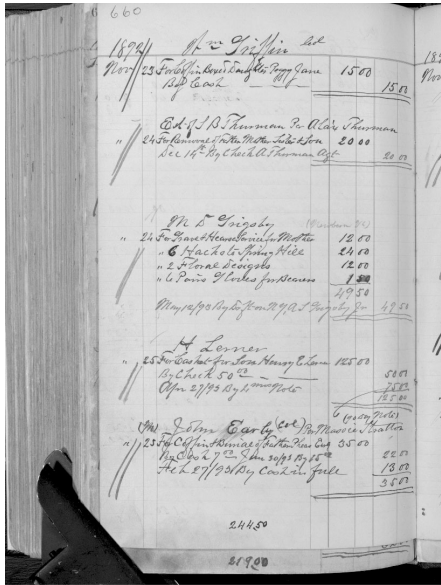 660
1892 Wm Griffin Col
Nov 23 For Coffin Boxed Daughter Peggy Jane 15 00
By Cash 15 00
Est. of S B Thurman Per Thurman
" 24 For Removal of Father Mother Sister & Son 20 00
Dec 14th By Check A Thurman Agt 20 00
M D Grigsby
" 24 For Grave & Hearse Service for Mother 12 00
" 6 Hacks to Spring Hill 24 00
" 2 Floral Designs 12 00
" 6 Pairs Gloves for Bearers 1 50
49 50
May 12/93 By Dft on N.Y. A S Grigsby Jr 49 50
H Lerner
" 25 For Casket for Son Henry E Lerner 125 00
By Check 50 00 50 00
Apr 27/93 By Note 75 00
125 00
(Notes)
John Early (Col) Per Stratton
" 25 For Coffin & Furnace Father 35 00
By Cash 7 00 Jan 30/93 By 15 00 22 00
Feb 27/93 By Cash in full 13 00
35 00
244 50
219 00